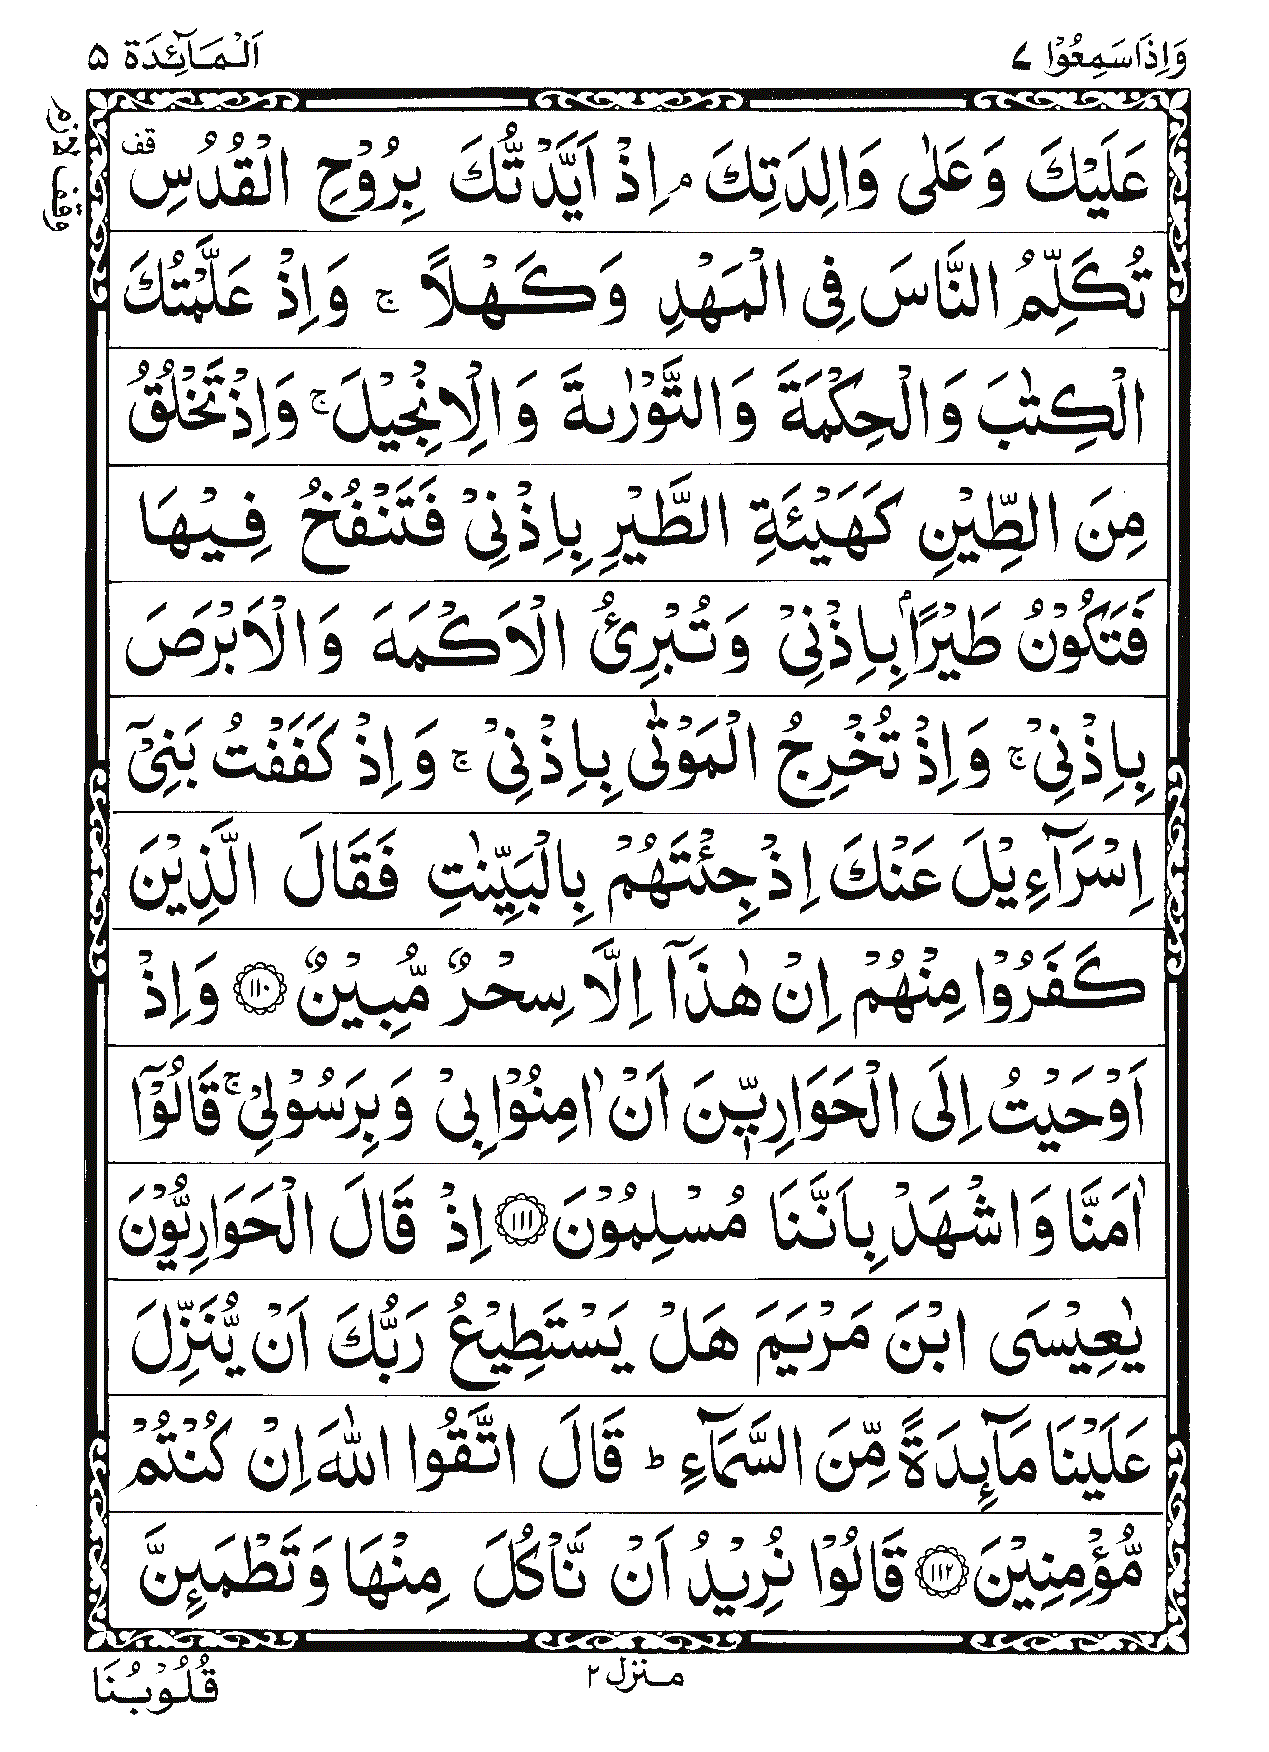 وَاِذَاسَمِعُوْا ٧ اَلْمَآئِدَة ٥
وقف لازم
عَلَيْكَ وَعَلٰى وَالِدَتِكَ ۘ اِذْ اَيَّدْتُّكَ بِرُوْحِ الْقُدُسِ قف
تُكَلِّمُ النَّاسَ فِى الْمَهْدِ وَكَهْلًا ۚ وَاِذْ عَلَّمْتُكَ
الْكِتٰبَ وَالْحِكْمَةَ وَالتَّوْرٰىةَ وَالْاِنْجِيْلَ ۚ وَاِذْ تَخْلُقُ
مِنَ الطِّيْنِ كَهَيْئَةِ الطَّيْرِ بِاِذْنِىْ فَتَنْفُخُ فِيْهَا
فَتَكُوْنُ طَيْرًاۢ بِاِذْنِىْ وَتُبْرِئُ الْاَكْمَهَ وَالْاَبْرَصَ
بِاِذْنِىْ ۚ وَاِذْ تُخْرِجُ الْمَوْتٰى بِاِذْنِىْ ۚ وَاِذْ كَفَفْتُ بَنِىْۤ
اِسْرَآءِيْلَ عَنْكَ اِذْ جِئْتَهُمْ بِالْبَيِّنٰتِ فَقَالَ الَّذِيْنَ
كَفَرُوْا مِنْهُمْ اِنْ هٰذَاۤ اِلَّا سِحْرٌ مُّبِيْنٌ ١١٠ وَاِذْ
اَوْحَيْتُ اِلَى الْحَوَارِيّٖنَ اَنْ اٰمِنُوْا بِىْ وَبِرَسُوْلِىْ ۚ قَالُوْۤا
اٰمَنَّا وَاشْهَدْ بِاَنَّنَا مُسْلِمُوْنَ ١١١ اِذْ قَالَ الْحَوَارِيُّوْنَ
يٰعِيْسَى ابْنَ مَرْيَمَ هَلْ يَسْتَطِيْعُ رَبُّكَ اَنْ يُّنَزِّلَ
عَلَيْنَا مَآئِدَةً مِّنَ السَّمَآءِ ؕ قَالَ اتَّقُوا اللّٰهَ اِنْ كُنْتُمْ
مُّؤْمِنِيْنَ ١١٢ قَالُوْا نُرِيْدُ اَنْ نَّاْكُلَ مِنْهَا وَتَطْمَئِنَّ
منزل ٢
قُلُوْبُنَا